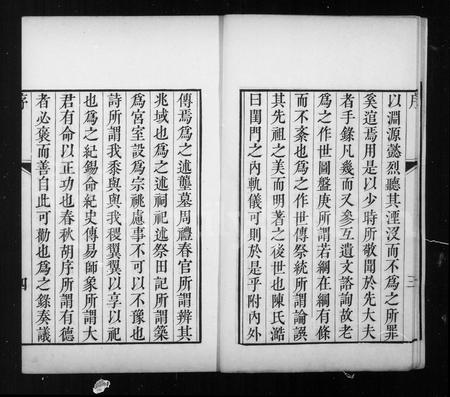 序 三
以淵源懿烈聽其湮沒而不爲之所罪
奚逭焉用是以少時所敬聞於先大夫
者手錄凡幾而又參互遺文諮詢故老
爲之作世圖盤庚所謂若網在綱有條
而不紊也爲之作世傳祭統所謂論譔
其先祖之美而明著之後世也陳氏澔
曰閨門之內軌儀可則於是乎附內外
傳焉爲之述壟墓周禮春官所謂辨其
兆域也爲之述祠祀述祭田記所謂築
爲宮室設爲宗祧慮事不可以不豫也
詩所謂我黍與與我稷翼翼以享以祀
也爲之紀錫命紀史傳易師象所謂大
君有命以正功也春秋胡序所謂有德
者必褒而善自此可勸也爲之錄奏議
序 四